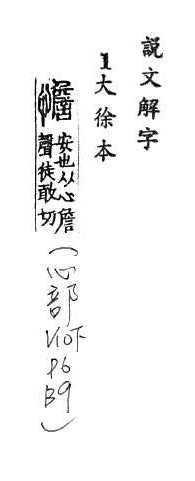 説文解字
1大徐本
憺 安也从心詹
聲徒敢切
(心部
V10下
P6
B9)